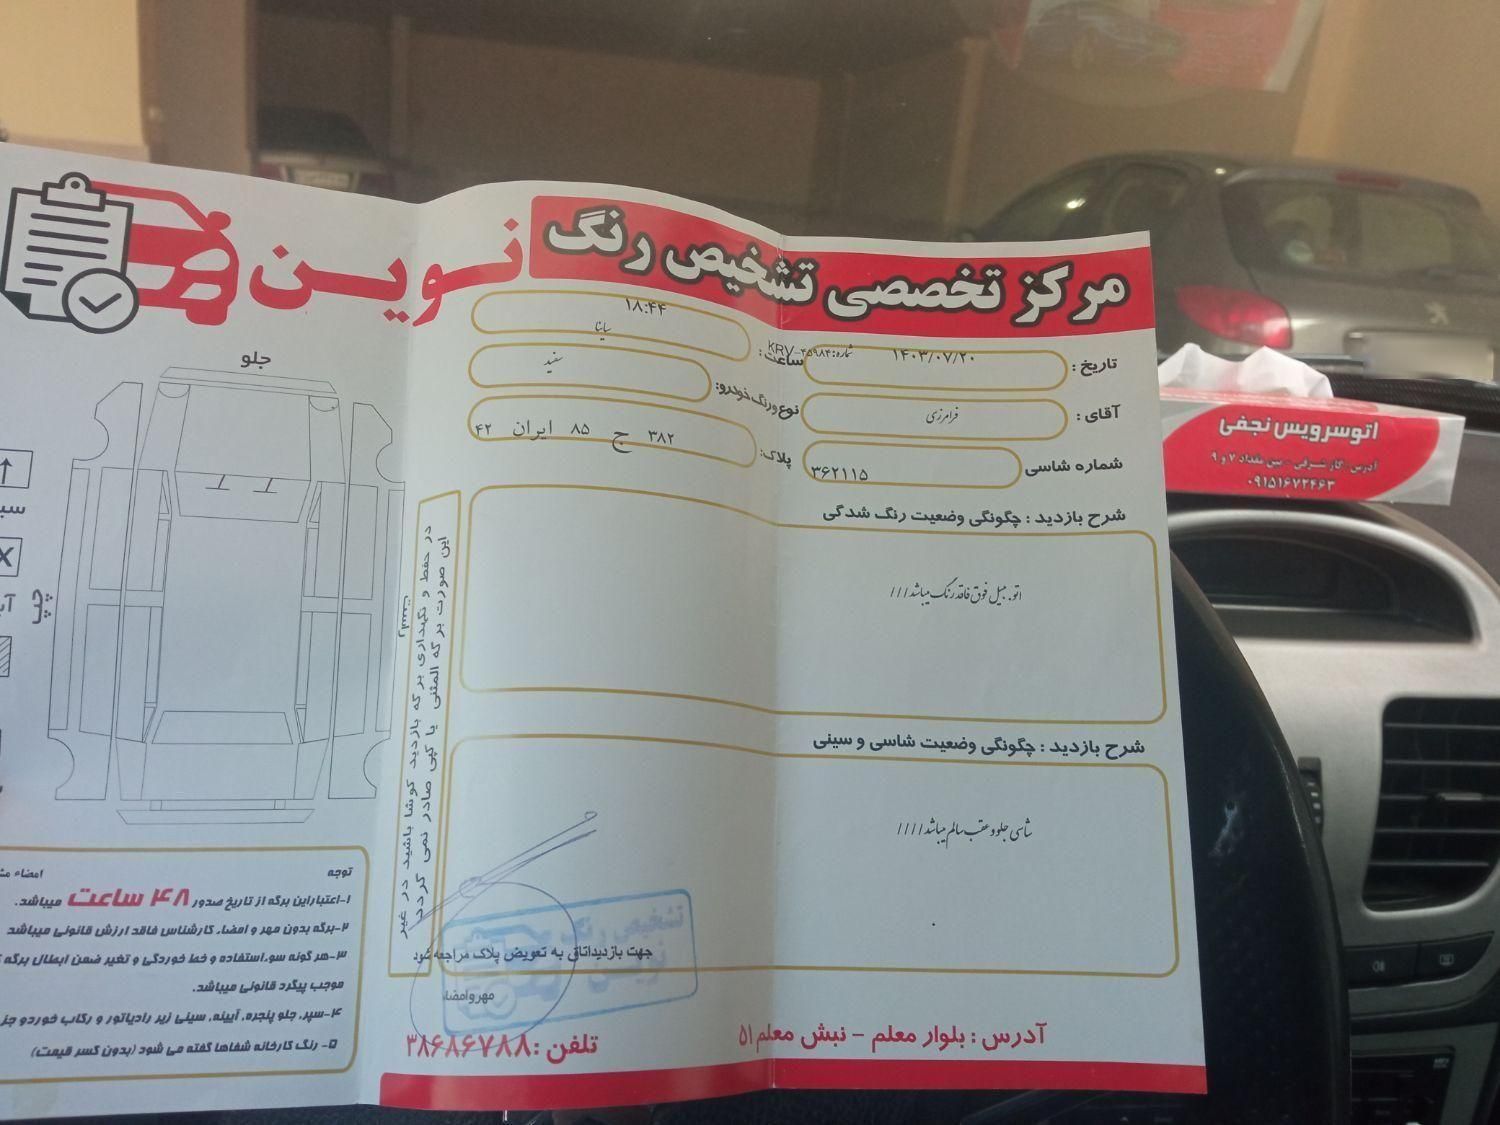 مرکز تخصصی تشخیص رنگ نوین
تاریخ : ۱۴۰۳/۰۷/۲۰
شماره: KRV-۴۵۹۸۴
ساعت : ۱۸:۴۴
آقای : فرامرزی
نوع ورنگ خودرو: ساینا
سفید
شماره شاسی ۳۶۲۱۱۵
پلاک: ۳۸۲ ج ۸۵ ایران ۴۲
شرح بازدید : چگونگی وضعیت رنگ شدگی
اتومبیل فوق فاقد رنگ میباشد///
شرح بازدید : چگونگی وضعیت شاسی و سینی
شاسی جلو و عقب سالم میباشد////
جهت بازدیداتاق به تعویض پلاک مراجعه شود
مهروامضاء
تشخیص رنگ
نوین
آدرس : بلوار معلم - نبش معلم ۵۱
تلفن : ۳۸۶۸۶۷۸۸
در حفظ و نگهداری برگه بازدید کوشا باشید در غیر
این صورت برگه المثنی یا کپی صادر نمی گردد
جلو
راست
چپ
توجه
۱-اعتباراین برگه از تاریخ صدور ۴۸ ساعت میباشد.
۲-برگه بدون مهر و امضاء کارشناس فاقد ارزش قانونی میباشد
۳-هر گونه سوء استفاده و خط خوردگی و تغیر ضمن ابطال برگه
موجب پیگرد قانونی میباشد.
۴-سپر، جلو پنجره، آیینه، سینی زیر رادیاتور و رکاب خوردو جز
۵- رنگ کارخانه شفاها گفته می شود (بدون کسر قیمت)
امضاء
اتوسرویس نجفی
آدرس: گاز شرقی - بین مقداد ۷ و ۹
۰۹۱۵۱۶۷۲۴۶۳